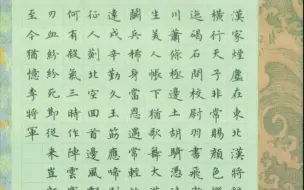 漢家煙塵在東北漢將
橫行天子非常賜顏色
迤碣石間校尉羽書飛
川蕭條極邊土胡騎憑
生美人帳下猶歌舞大
鬬兵稀身當恩遇常輕
遠戍辛勤久玉筯應啼
征人薊北空回首邊風
何有殺氣三時作陣雲
刃血紛紛死節從來豈
至今猶憶李將軍